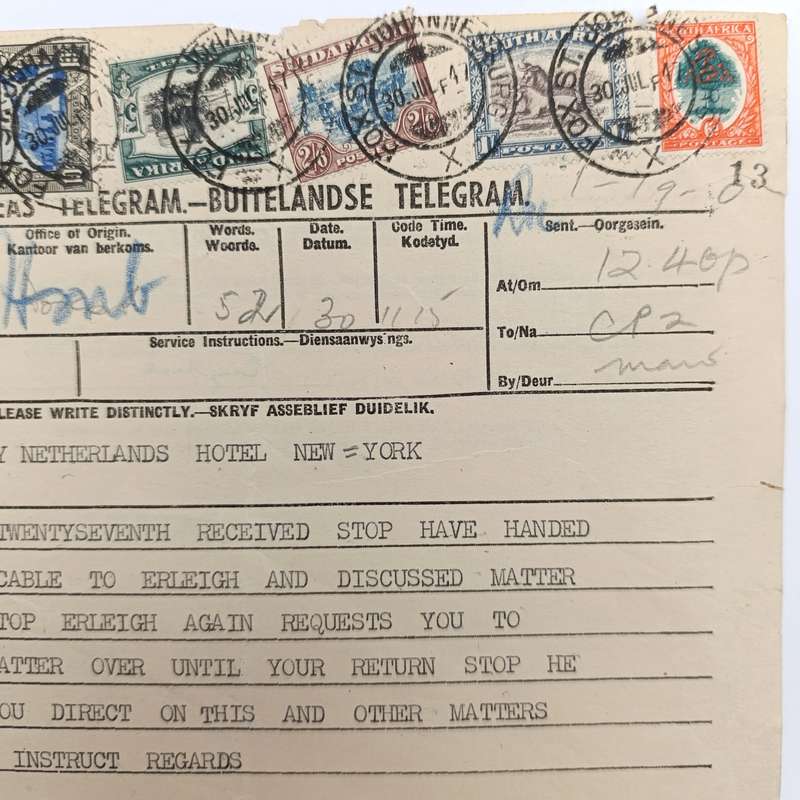 SUID AFRIKA
SOUTH AFRICA
5/-
2/6 POSTAGE 2/6
1/- POSTAGE
6D POSTAGE
JOHANNESBURG
FOX ST.
30 JUL 47
X
13
EAS TELEGRAM.—BUITELANDSE TELEGRAM.
Office of Origin.
Kantoor van herkoms.
Words.
Woorde.
Date.
Datum.
Code Time.
Kodetyd.
Sent.—Oorgesein.
52
30
11 15
At/Om
12.40p
To/Na
By/Deur
Service Instructions.—Diensaanwysings.
LEASE WRITE DISTINCTLY.—SKRYF ASSEBLIEF DUIDELIK.
Y NETHERLANDS HOTEL NEW=YORK
TWENTYSEVENTH RECEIVED STOP HAVE HANDED
CABLE TO ERLEIGH AND DISCUSSED MATTER
TOP ERLEIGH AGAIN REQUESTS YOU TO
ATTER OVER UNTIL YOUR RETURN STOP HE
OU DIRECT ON THIS AND OTHER MATTERS
INSTRUCT REGARDS